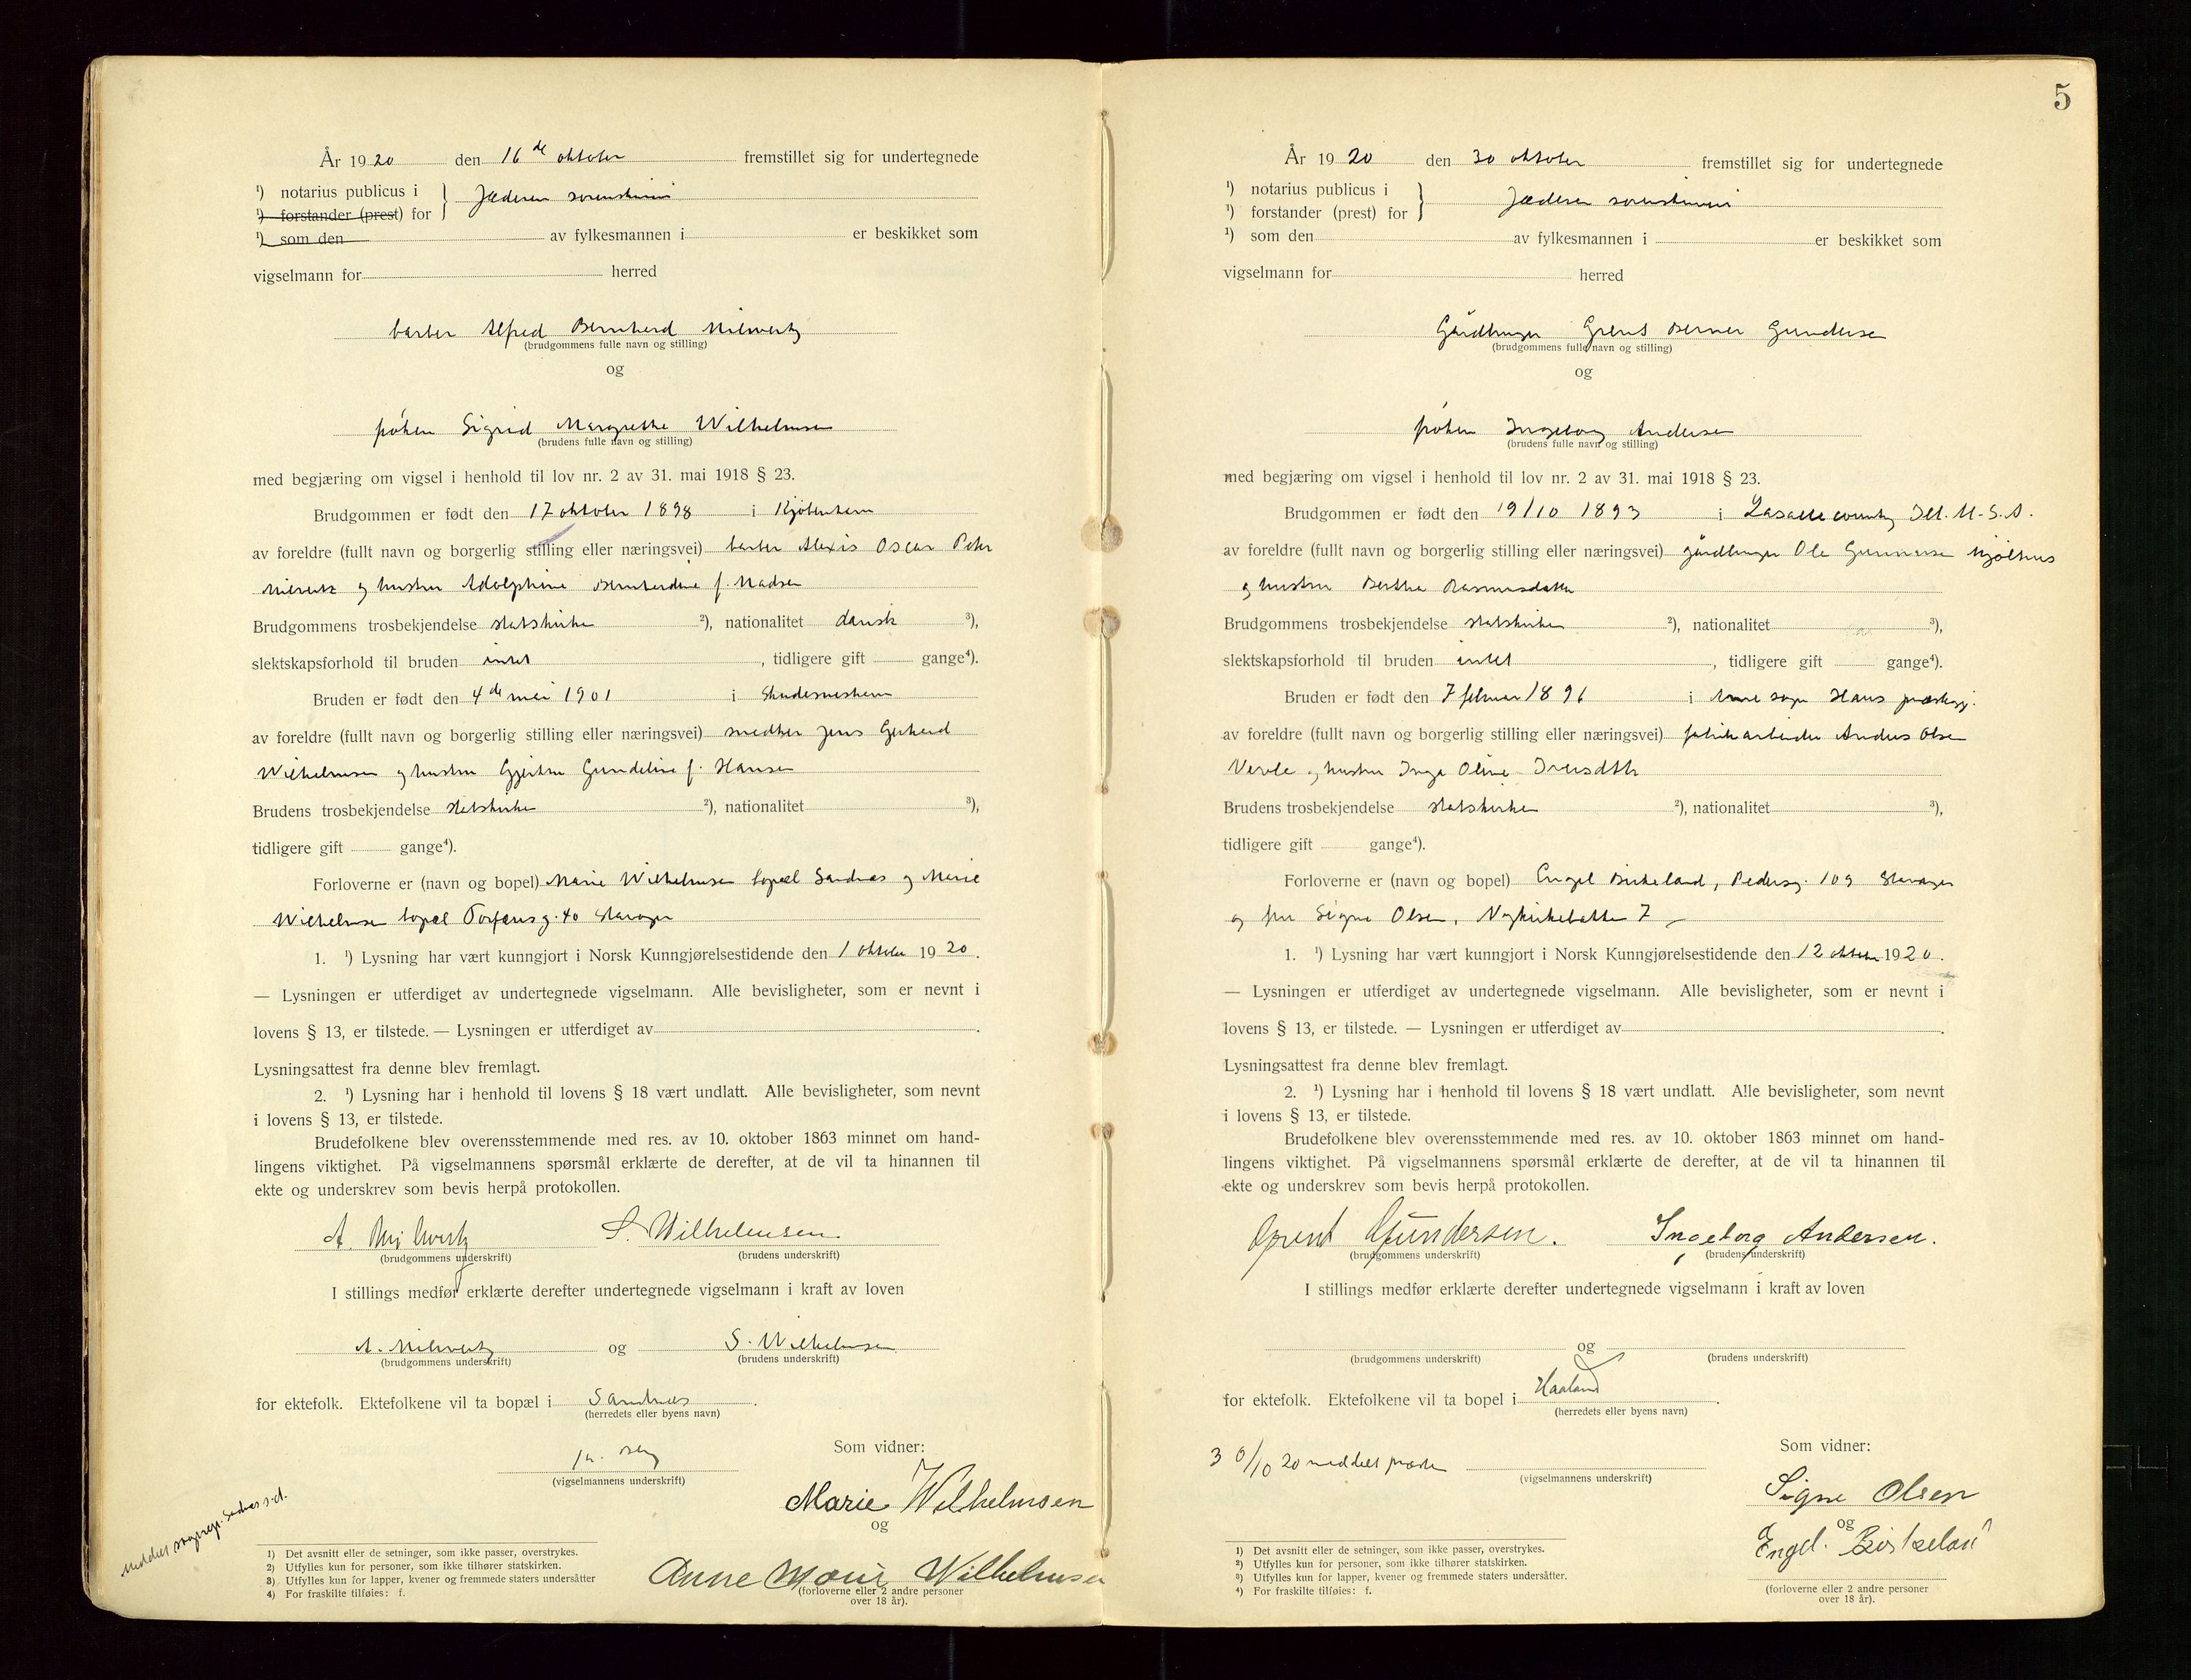 År 1920 den 16de oktober fremstillet sig for undertegnede
¹) notarius publicus i
¹) forstander (prest) for
Jæderen sorenskriveri
¹) som den av fylkesmannen i er beskikket som
vigselmann for herred
barber Alfred Bernhard Milwertz
(brudgommens fulle navn og stilling)
og
frøken Sigrid Margrethe Wilhelmsen
(brudens fulle navn og stilling)
med begjæring om vigsel i henhold til lov nr. 2 av 31. mai 1918 § 23.
Brudgommen er født den 17 oktober 1898 i Kjøbenhavn
av foreldre (fullt navn og borgerlig stilling eller næringsvei) barber Alexis Oscar Peter
og hustru Adolphine Bernhardine f. Madsen
Brudgommens trosbekjendelse statskirken ²), nationalitet dansk ³),
slektskapsforhold til bruden intet , tidligere gift gange⁴).
Bruden er født den 4de mai 1901 i Skudesneshavn
av foreldre (fullt navn og borgerlig stilling eller næringsvei) snedker Jens Gerhard
Wilhelmsen og hustru Gundeline f. Hansen
Brudens trosbekjendelse statskirken ²), nationalitet ³),
tidligere gift gange⁴).
Forloverne er (navn og bopel) Marie Wilhelmsen bopæl Sandnes og Marie
Wilhelmsen bopæl Torfæusg. 40 Stavanger
1. ¹) Lysning har vært kunngjort i Norsk Kunngjørelsestidende den 1 oktober 1920.
— Lysningen er utferdiget av undertegnede vigselmann. Alle bevisligheter, som er nevnt i
lovens § 13, er tilstede. — Lysningen er utferdiget av .
Lysningsattest fra denne blev fremlagt.
2. ¹) Lysning har i henhold til lovens § 18 vært undlatt. Alle bevisligheter, som nevnt
i lovens § 13, er tilstede.
Brudefolkene blev overensstemmende med res. av 10. oktober 1863 minnet om hand-
lingens viktighet. På vigselmannens spørsmål erklærte de derefter, at de vil ta hinannen til
ekte og underskrev som bevis herpå protokollen.
A. Milwertz S. Wilhelmsen.
(brudgommens underskrift) (brudens underskrift)
I stillings medfør erklærte derefter undertegnede vigselmann i kraft av loven
A. Milwertz og S. Wilhelmsen
(brudgommens underskrift) (brudens underskrift)
for ektefolk. Ektefolkene vil ta bopæl i Sandnes .
(herredets eller byens navn)
Som vidner:
(vigselmannens underskrift)
Marie Wilhelmsen
og
Anne Marie Wilhelmsen
(forloverne eller 2 andre personer
over 18 år).
meddelt
1) Det avsnitt eller de setninger, som ikke passer, overstrykes.
2) Utfylles kun for personer, som ikke tilhører statskirken.
3) Utfylles kun for lapper, kvener og fremmede staters undersåtter
4) For fraskilte tilføies: f.
5
År 1920 den 30 oktober fremstillet sig for undertegnede
¹) notarius publicus i
¹) forstander (prest) for
Jæderen sorenskriveri
¹) som den av fylkesmannen i er beskikket som
vigselmann for herred
Gårdbruger Grent Berner Gundersen
(brudgommens fulle navn og stilling)
og
frøken Ingeborg Andersen
(brudens fulle navn og stilling)
med begjæring om vigsel i henhold til lov nr. 2 av 31. mai 1918 § 23.
Brudgommen er født den 19/10 1893 i Lasalle county Ill. U.S.A.
av foreldre (fullt navn og borgerlig stilling eller næringsvei) gårdbruger Ole
og hustru Bertha Rasmusdatter
Brudgommens trosbekjendelse statskirken ²), nationalitet ³),
slektskapsforhold til bruden intet , tidligere gift gange⁴).
Bruden er født den 7 februar 1896 i Arne sogn Haus præstegj.
av foreldre (fullt navn og borgerlig stilling eller næringsvei) fabrikarbeider Anders Olsen
og hustru Inga Oline
Brudens trosbekjendelse statskirken ²), nationalitet ³),
tidligere gift gange⁴).
Forloverne er (navn og bopel) Engel Birkeland, Pedersg. 109 Stavanger
og fru Signe Olsen, Nykirkebakken 7
1. ¹) Lysning har vært kunngjort i Norsk Kunngjørelsestidende den 12 oktober 1920.
— Lysningen er utferdiget av undertegnede vigselmann. Alle bevisligheter, som er nevnt i
lovens § 13, er tilstede. — Lysningen er utferdiget av .
Lysningsattest fra denne blev fremlagt.
2. ¹) Lysning har i henhold til lovens § 18 vært undlatt. Alle bevisligheter, som nevnt
i lovens § 13, er tilstede.
Brudefolkene blev overensstemmende med res. av 10. oktober 1863 minnet om hand-
lingens viktighet. På vigselmannens spørsmål erklærte de derefter, at de vil ta hinannen til
ekte og underskrev som bevis herpå protokollen.
Grent Gundersen. Ingeborg Andersen.
(brudgommens underskrift) (brudens underskrift)
I stillings medfør erklærte derefter undertegnede vigselmann i kraft av loven
og
(brudgommens underskrift) (brudens underskrift)
for ektefolk. Ektefolkene vil ta bopel i Haaland .
(herredets eller byens navn)
Som vidner:
30/10 20 meddelt præsten
(vigselmannens underskrift)
Signe Olsen
og
Engel. Birkeland
(forloverne eller 2 andre personer
over 18 år).
1) Det avsnitt eller de setninger, som ikke passer, overstrykes.
2) Utfylles kun for personer, som ikke tilhører statskirken.
3) Utfylles kun for lapper, kvener og fremmede staters undersåtter.
4) For fraskilte tilføies: f.